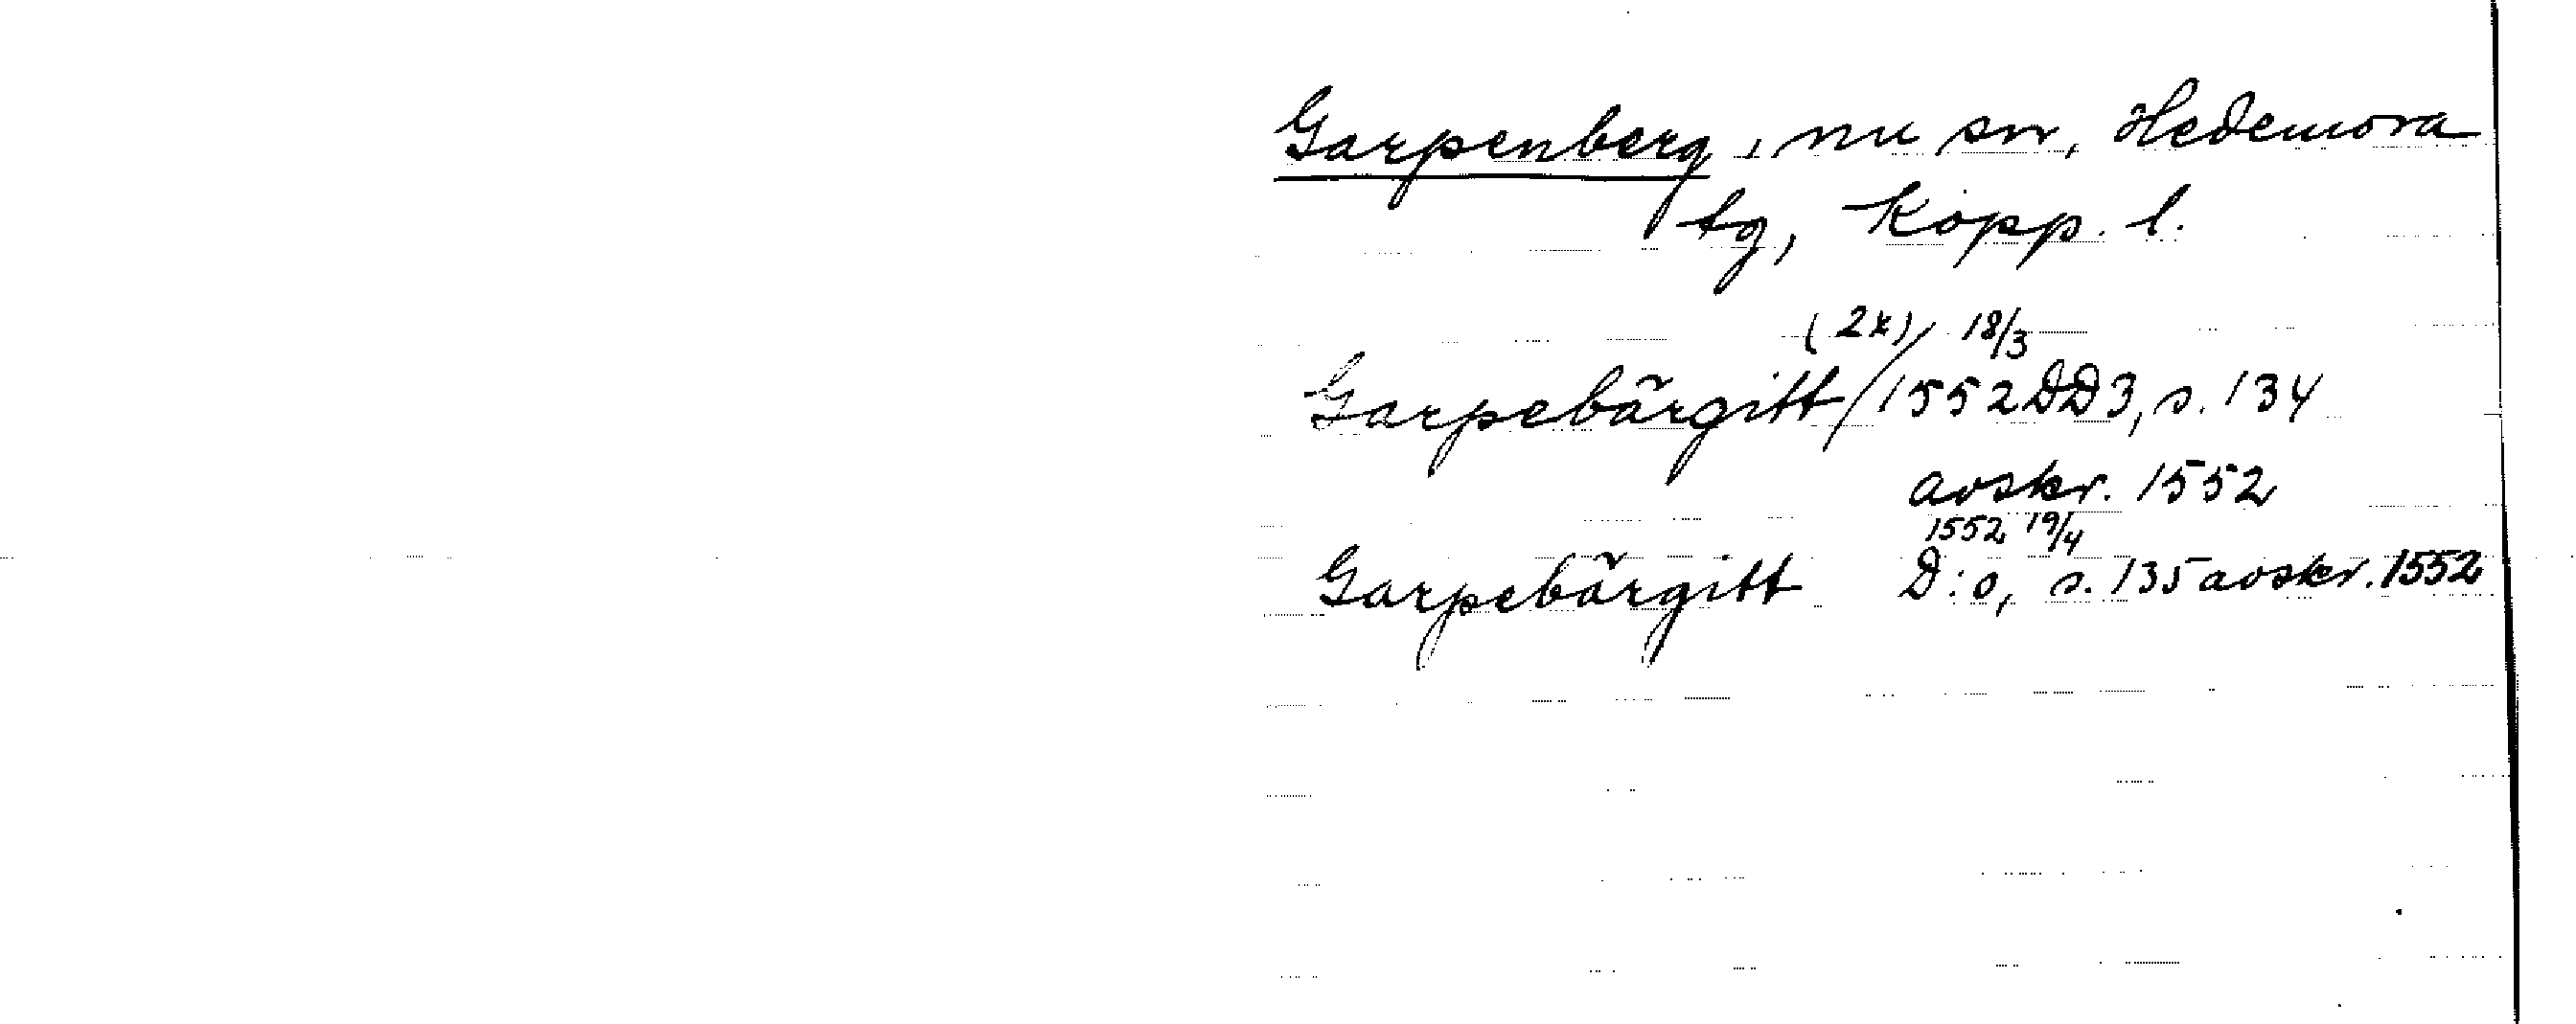 Garpenberg, nu sn, Hedemora
tg, Kopp. l.
(2x) 18/3
Garpebärgitt / 1552 DD3, s. 134
avskr. 1552
1552 19/4
Garpebärgitt D:o, s. 135 avskr. 1552